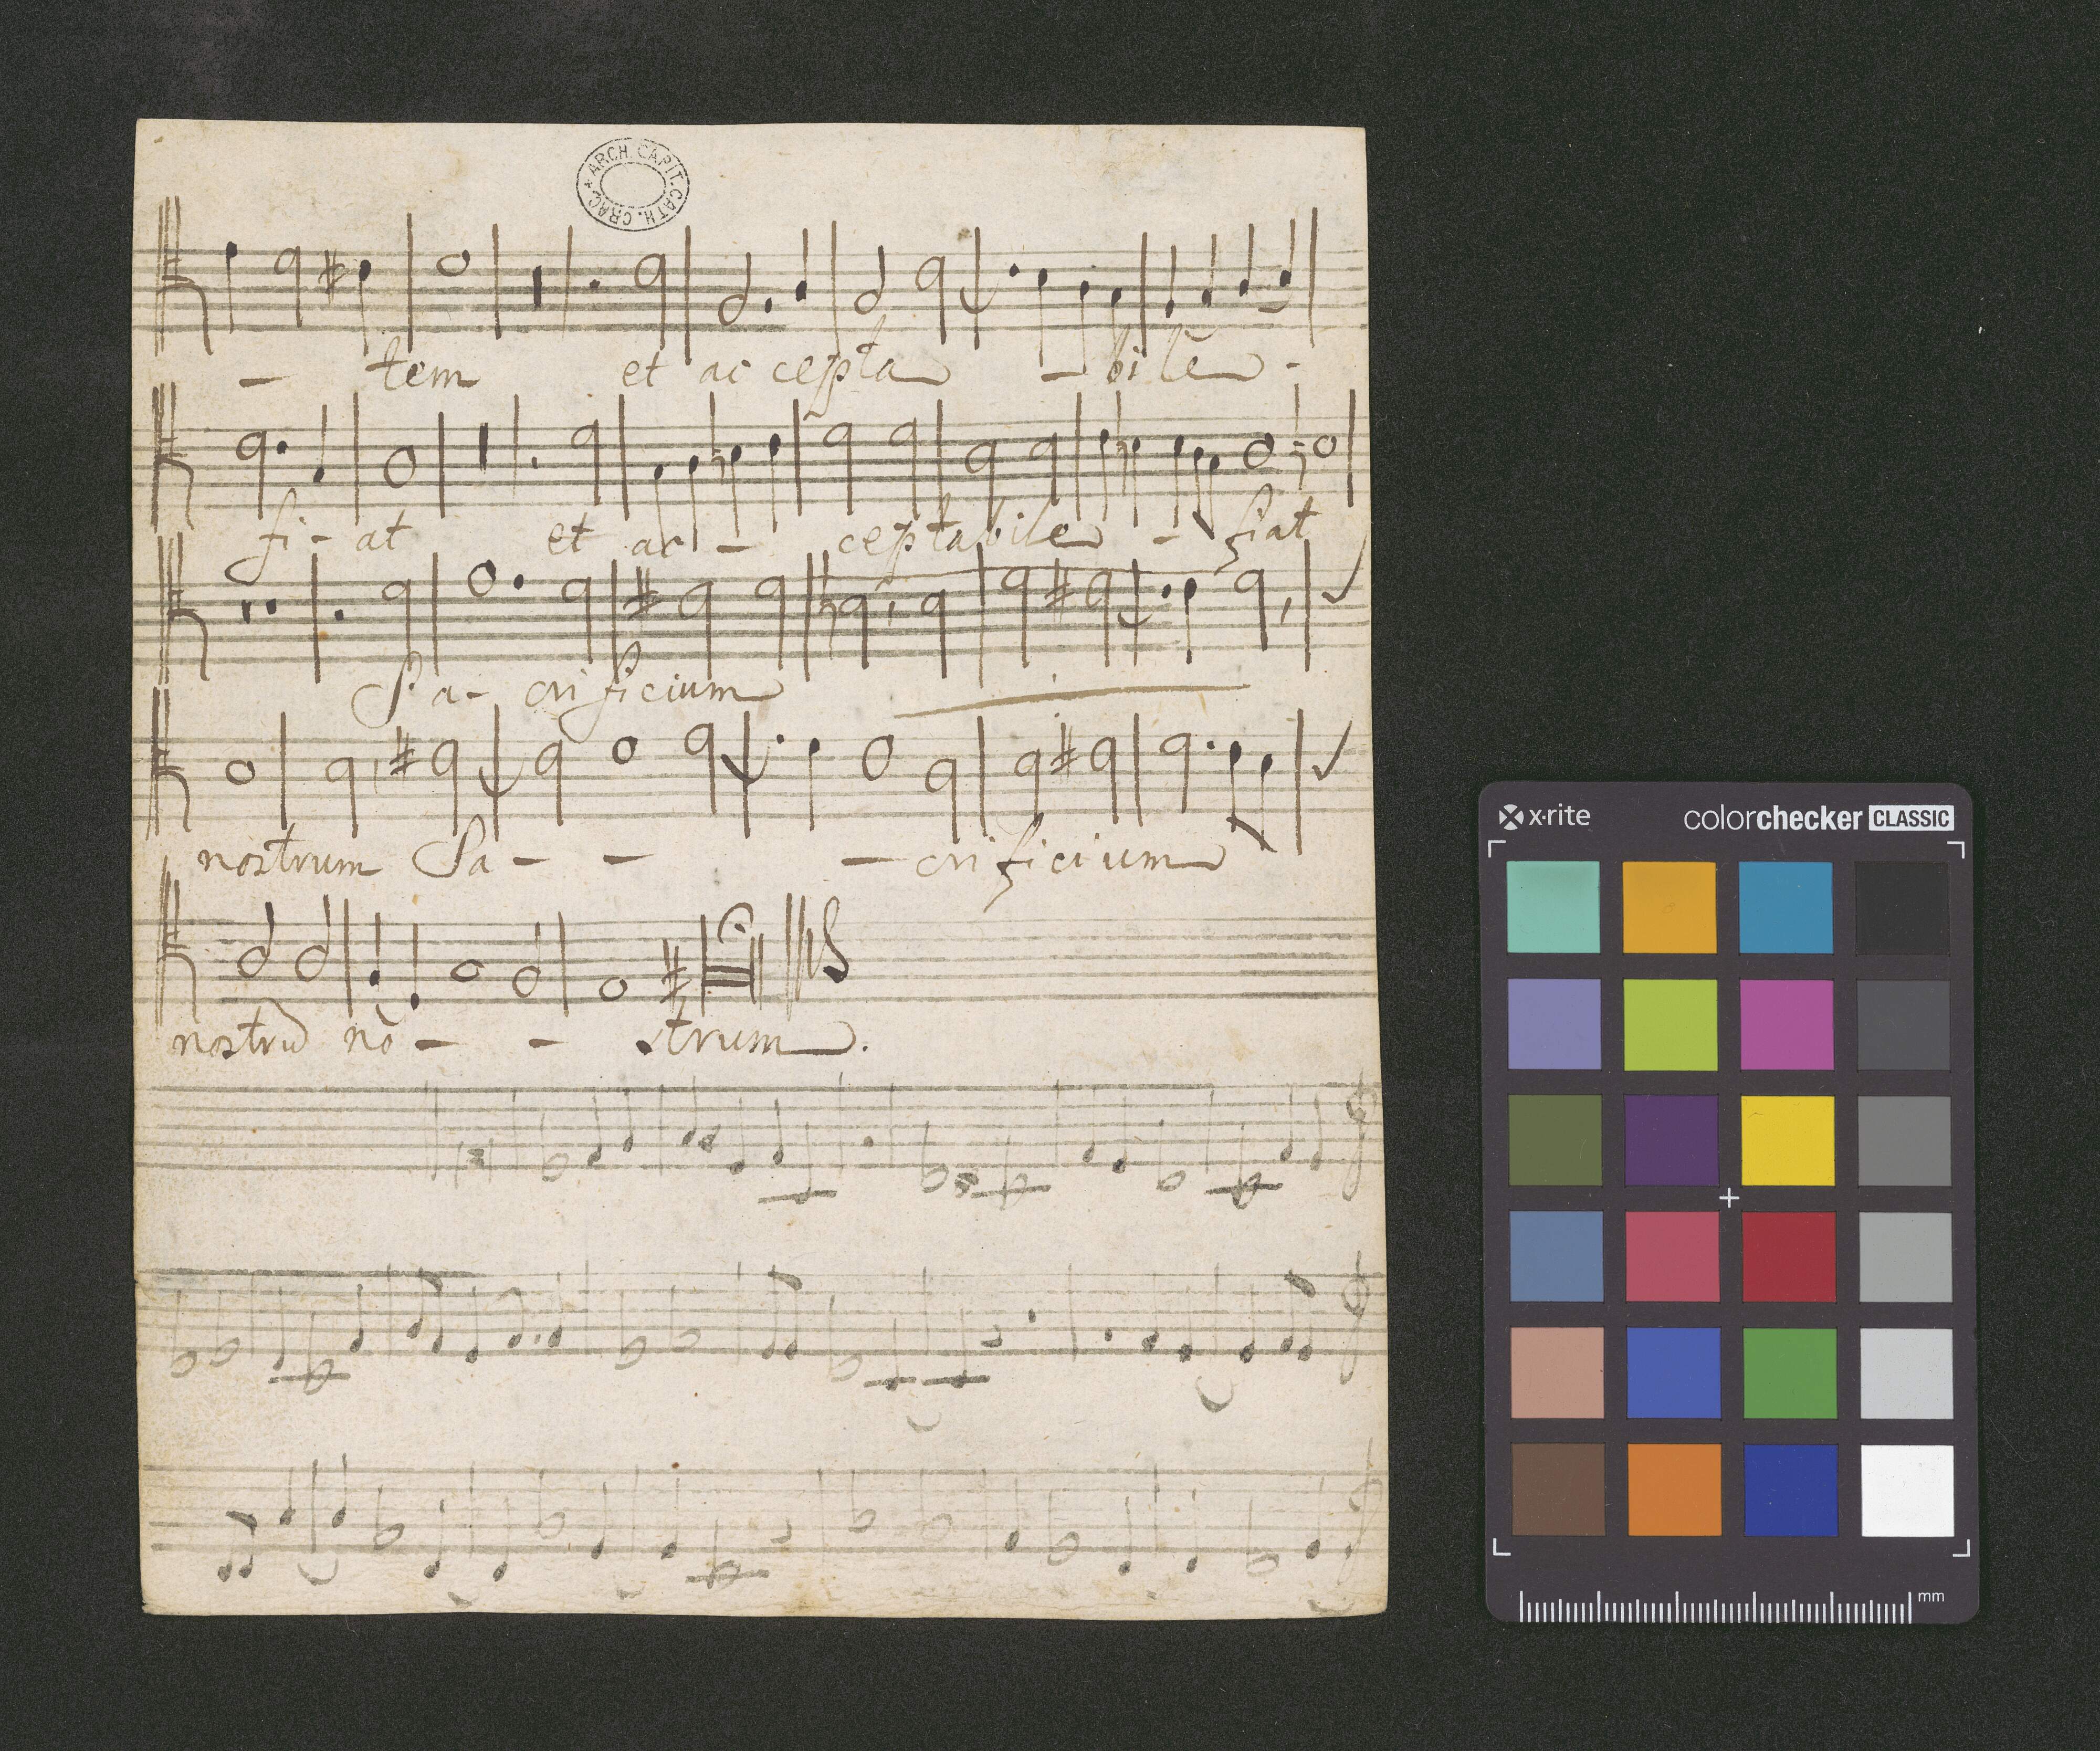 ARCH. CAPIT. CATH. CRAC. *
- tem et ac cepta - bile -
fi - at et ac - ceptabile - fiat
Sa - crificium
nostrum Sa - - - crificium
nostrũ no - - strum.
x·rite colorchecker CLASSIC
mm